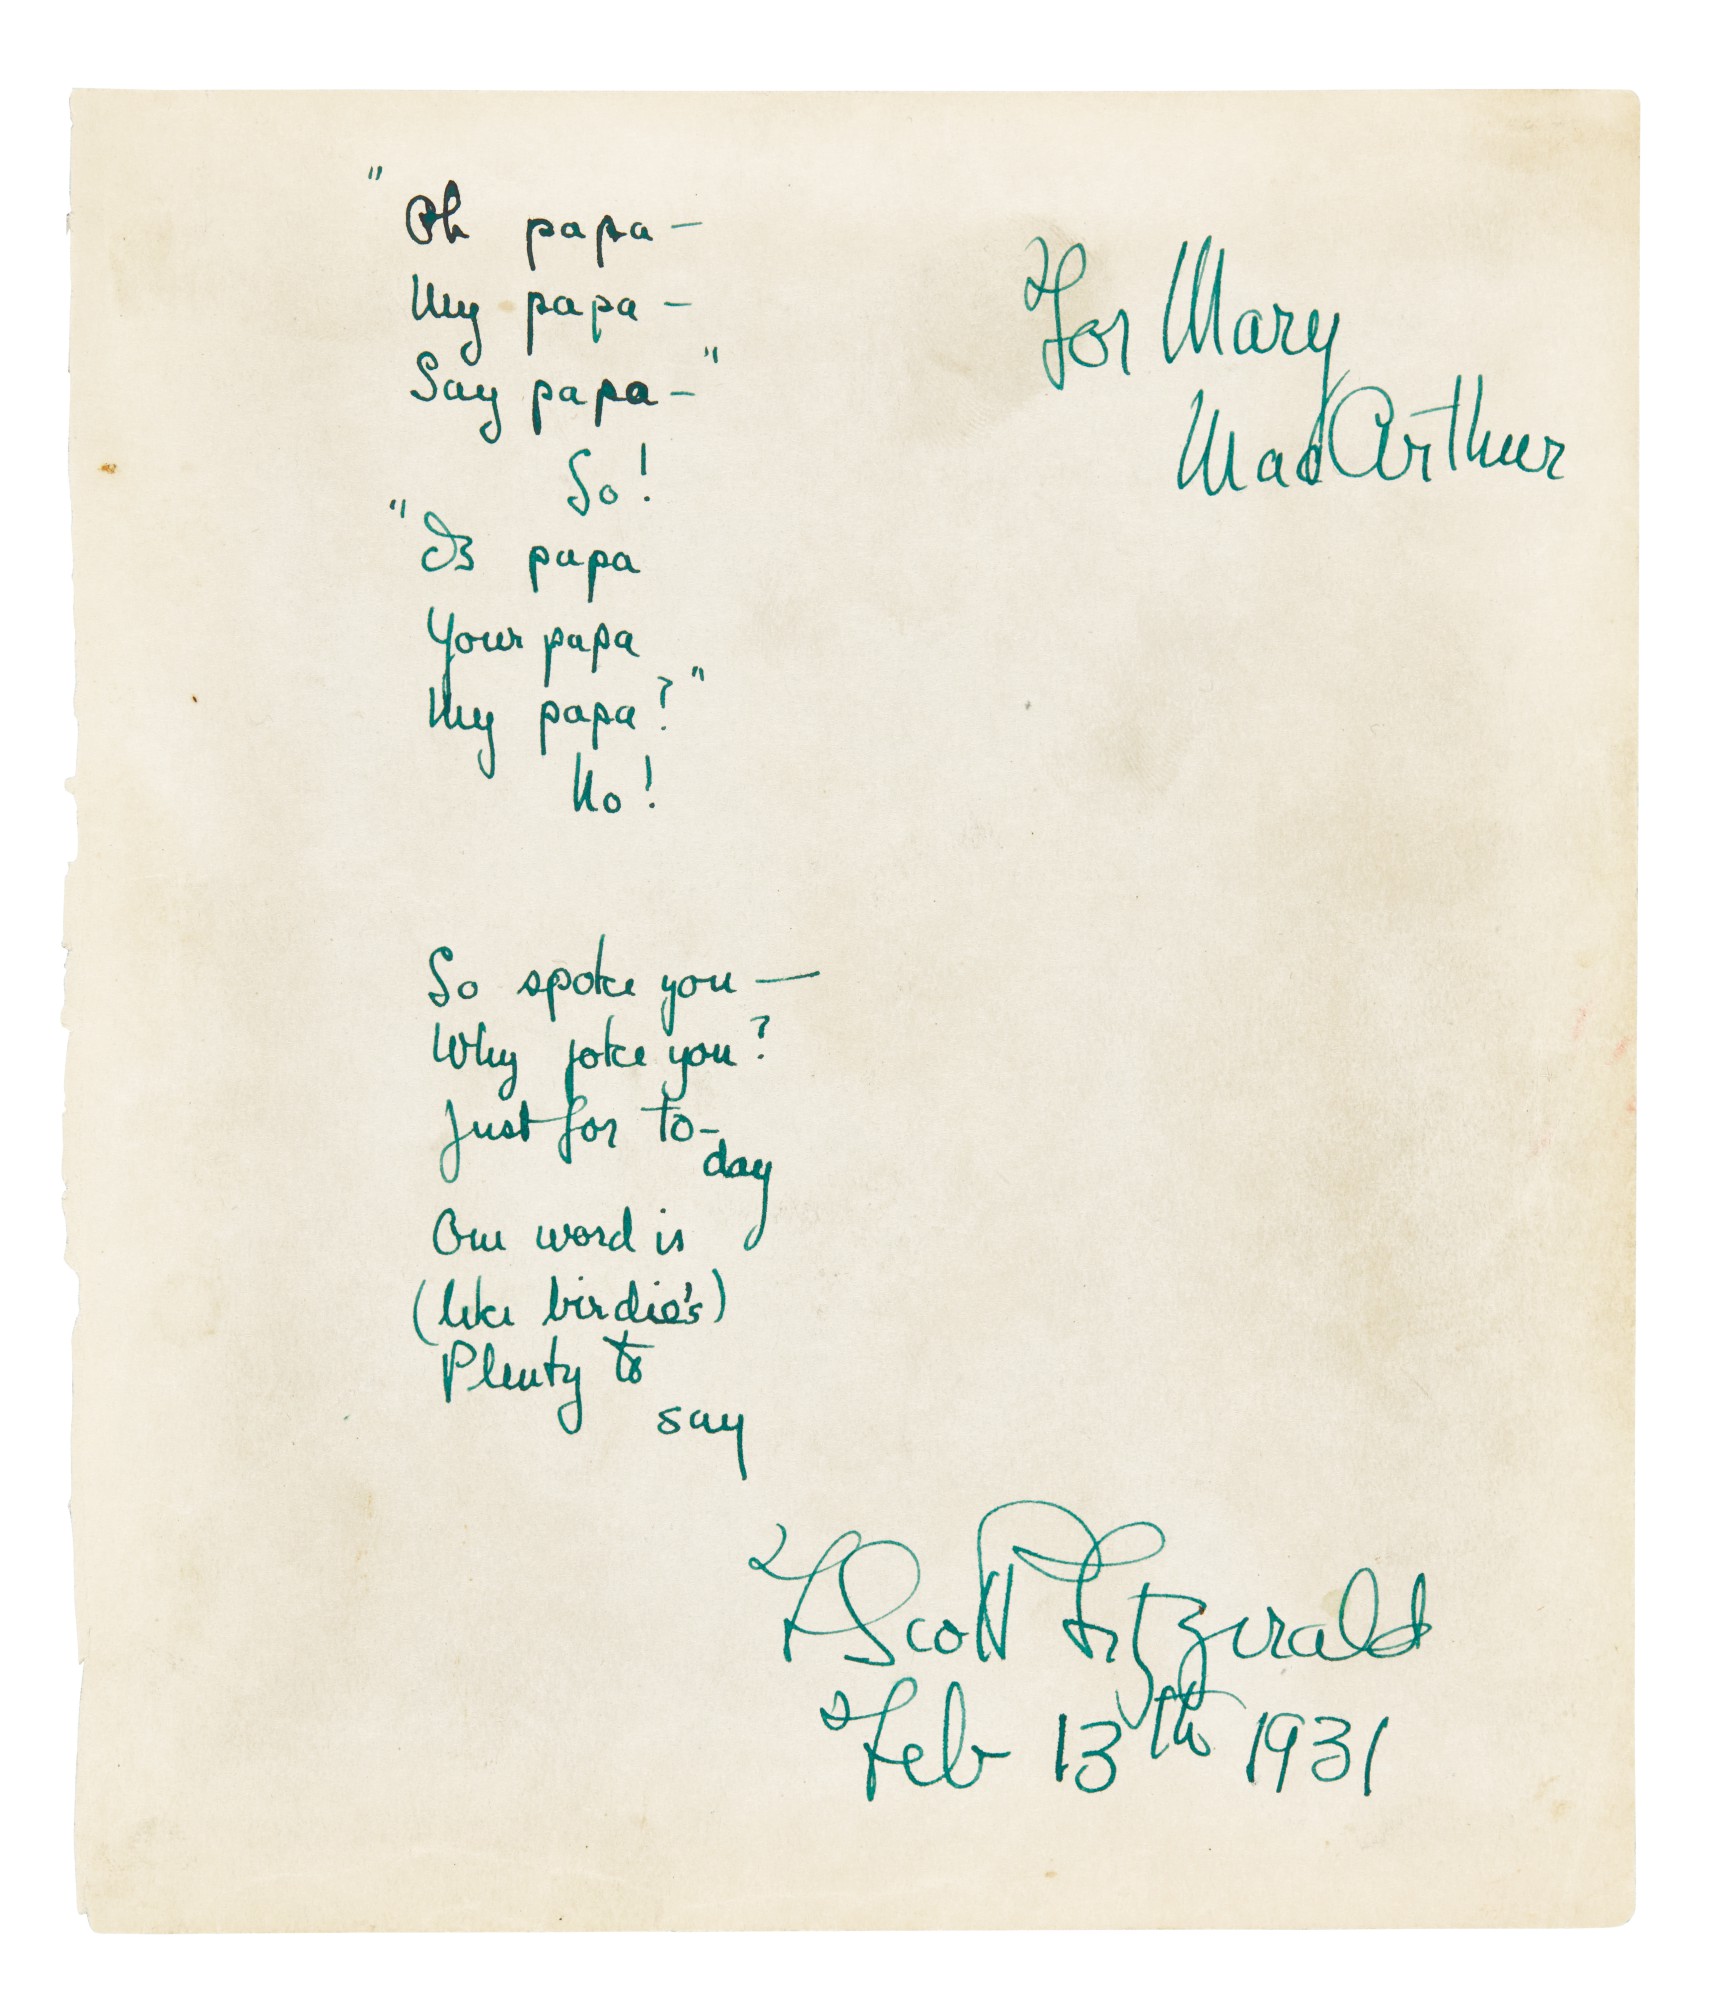 "Oh papa –
My papa –
Say papa –"
So!
"Is papa
Your papa
My papa?"
No!
For Mary
MacArthur
So spoke you —
Why joke you?
Just for to-
day
One word is
(like birdie's)
Plenty to
say
F Scott Fitzgerald
Feb 13th 1931